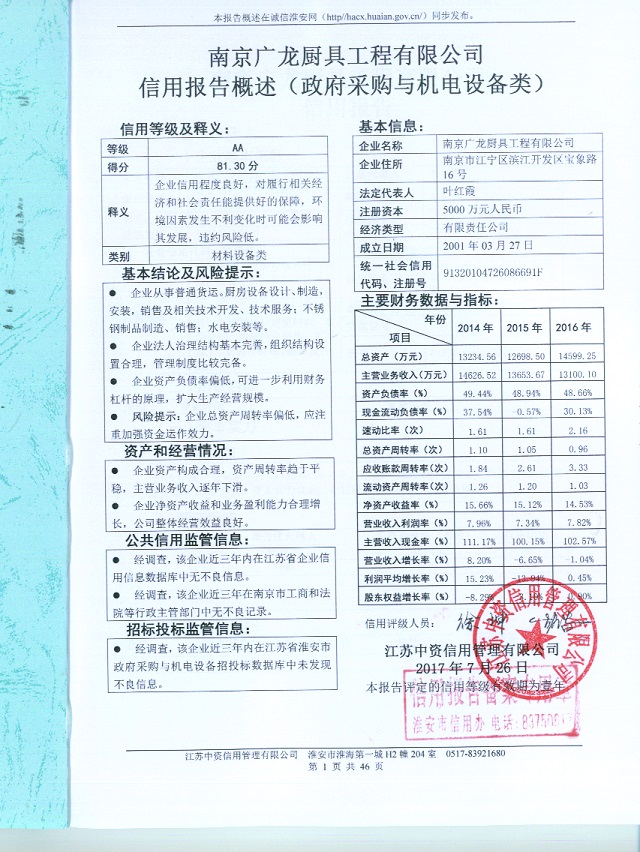 本报告概述在诚信淮安网（http//hacx.huaian.gov.cn/）同步发布。
南京广龙厨具工程有限公司
信用报告概述（政府采购与机电设备类）
信用等级及释义：
等级 AA
得分 81.30分
释义 企业信用程度良好，对履行相关经
济和社会责任能提供好的保障，环
境因素发生不利变化时可能会影响
其发展，违约风险低。
类别 材料设备类
基本结论及风险提示：
● 企业从事普通货运。厨房设备设计、制造，
安装，销售及相关技术开发、技术服务；不锈
钢制品制造、销售；水电安装等。
● 企业法人治理结构基本完善，组织结构设
置合理，管理制度比较完备。
● 企业资产负债率偏低，可进一步利用财务
杠杆的原理，扩大生产经营规模。
● 风险提示：企业总资产周转率偏低，应注
重加强资金运作效力。
资产和经营情况：
● 企业资产构成合理，资产周转率趋于平
稳，主营业务收入逐年下滑。
● 企业净资产收益和业务盈利能力合理增
长，公司整体经营效益良好。
公共信用监管信息：
● 经调查，该企业近三年内在江苏省企业信
用信息数据库中无不良信息。
● 经调查，该企业近三年在南京市工商和法
院等行政主管部门中无不良记录。
招标投标监管信息：
● 经调查，该企业近三年内在江苏省淮安市
政府采购与机电设备招投标数据库中未发现
不良信息。
基本信息：
企业名称 南京广龙厨具工程有限公司
企业住所 南京市江宁区滨江开发区宝象路
16号
法定代表人 叶红霞
注册资本 5000万元人民币
经济类型 有限责任公司
成立日期 2001年03月27日
统一社会信用
代码、注册号 91320104726086691F
主要财务数据与指标：
年份 项目 2014年 2015年 2016年
总资产（万元） 13234.56 12698.50 14599.25
主营业务收入(万元) 14626.52 13653.67 13100.10
资产负债率（%） 49.44% 48.94% 48.66%
现金流动负债率（%） 37.54% -0.57% 30.13%
速动比率（次） 1.61 1.61 2.16
总资产周转率（次） 1.10 1.05 0.96
应收账款周转率（次） 1.84 2.61 3.33
流动资产周转率（次） 1.26 1.20 1.03
净资产收益率（%） 15.66% 15.12% 14.53%
营业收入利润率（%） 7.96% 7.34% 7.82%
主营收入现金率（%） 111.17% 100.15% 102.57%
营业收入增长率（%） 8.20% -6.65% -1.04%
利润平均增长率（%） 15.23% 0.45%
股东权益增长率（%） -8.29%
信用评级人员：
江苏中资信用管理有限公司
2017年7月26日
本报告评定的信用等级有效期为壹年
江苏中资信用管理有限公司
信用报告备案专用章
淮安市信用办 电话：
江苏中资信用管理有限公司 淮安市淮海第一城H2幢204室 0517-83921680
第 1 页 共 46 页